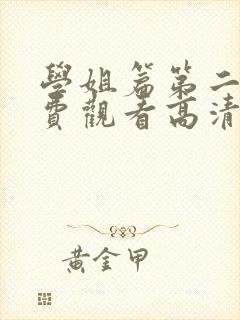 學姐篇第二
費觀看高清
黃金甲